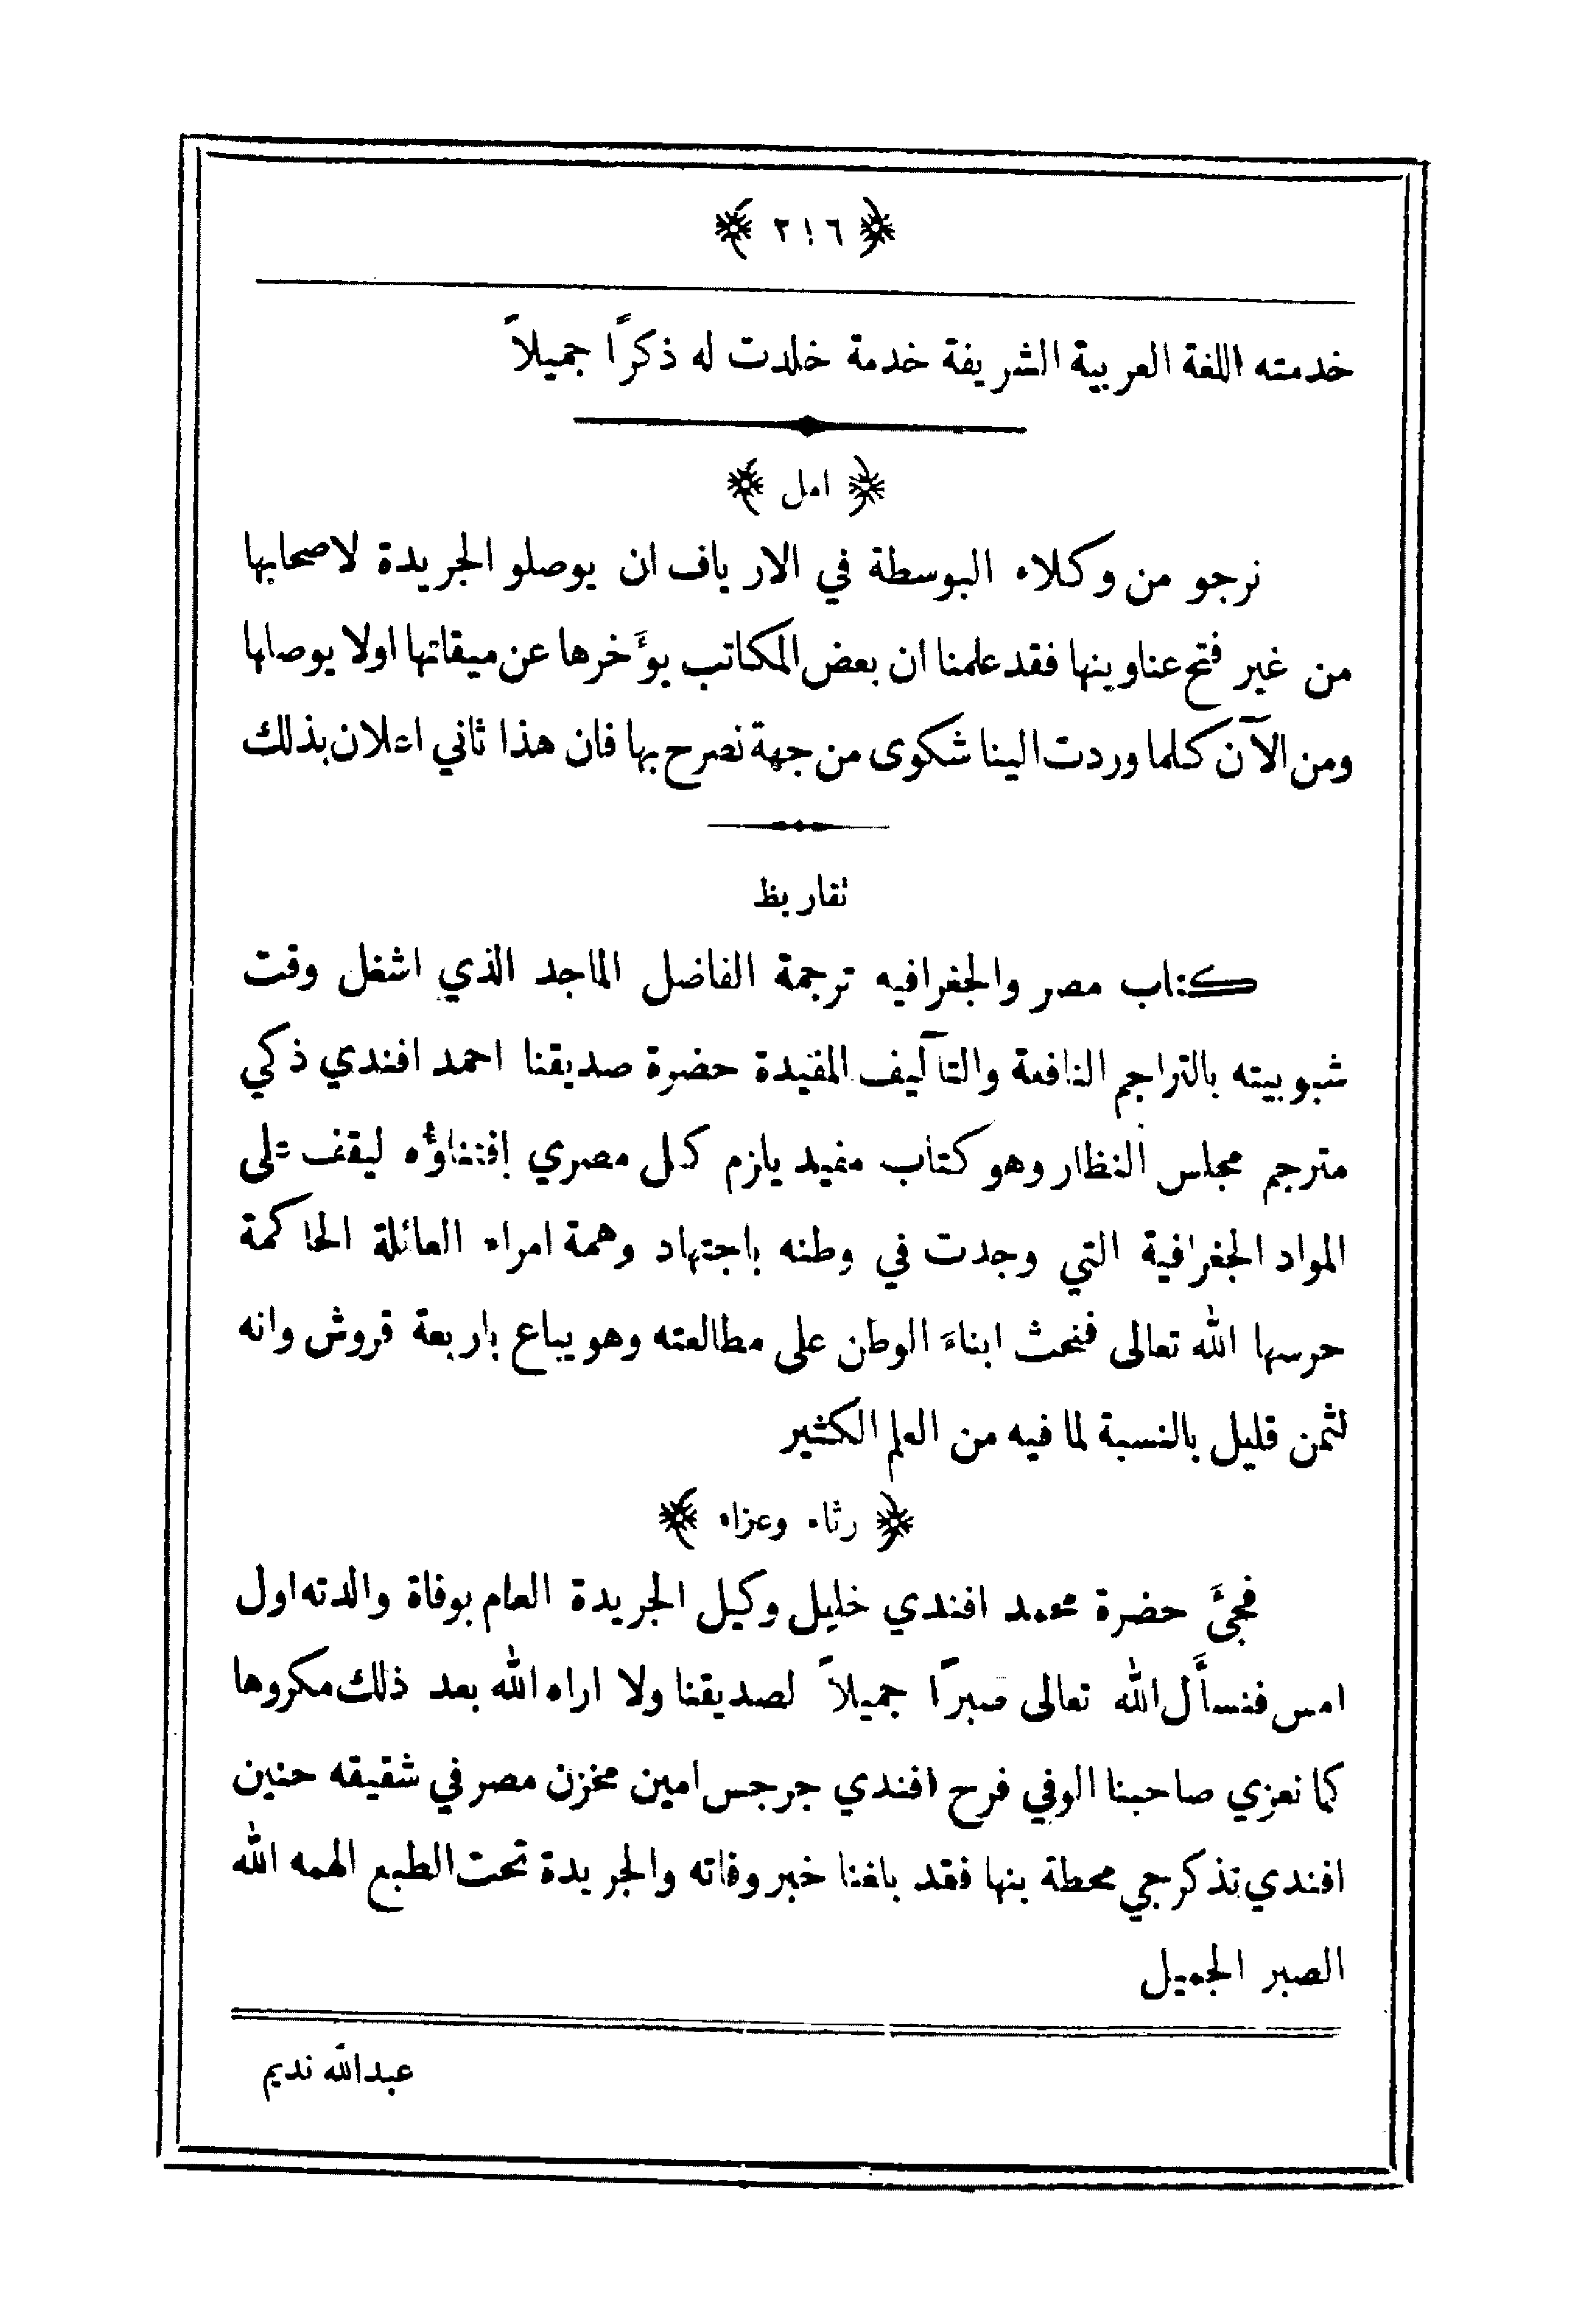 ﴿ ٢١٦ ﴾
خدمته اللغة العربية الشريفة خدمة خلدت له ذكرًا جميلاً
﴿ امل ﴾
نرجو من وكلاء البوسطة في الارياف ان يوصلو الجريدة لاصحابها
من غير فتح عناوينها فقد علمنا ان بعض المكاتب يوَّخرها عن ميقاتها اولا يوصلها
ومن الآن كلما وردت الينا شكوى من جهة نصرح بها فان هذا ثاني اعلان بذلك
تقاريظ
كتاب مصر والجغرافيه ترجمة الفاضل الماجد الذي اشغل وقت
شبوبيته بالتراجم النافعة والتآليف المفيدة حضرة صديقنا احمد افندي ذكي
مترجم مجلس النظار وهو كتاب مفيد يلزم كل مصري إقتناؤه ليقف على
المواد الجغرافية التي وجدت في وطنه باجتهاد وهمة امراء العائلة الحاكمة
حرسها الله تعالى فنحث ابناءَ الوطن على مطالعته وهو يباع باربعة قروش وانه
لثمن قليل بالنسبة لما فيه من العلم الكثير
﴿ رثاء وعزاء ﴾
فجئَ حضرة محمد افندي خليل وكيل الجريدة العام بوفاة والدته اول
امس فنسأَل الله تعالى صبرًا جميلاً لصديقنا ولا اراه الله بعد ذلك مكروها
كما نعزي صاحبنا الوفي فرح افندي جرجس امين مخزن مصر في شقيقه حنين
افندي تذكرجي محطة بنها فقد بلغنا خبر وفاته والجريدة تحت الطبع الهمه الله
الصبر الجميل
عبدالله نديم